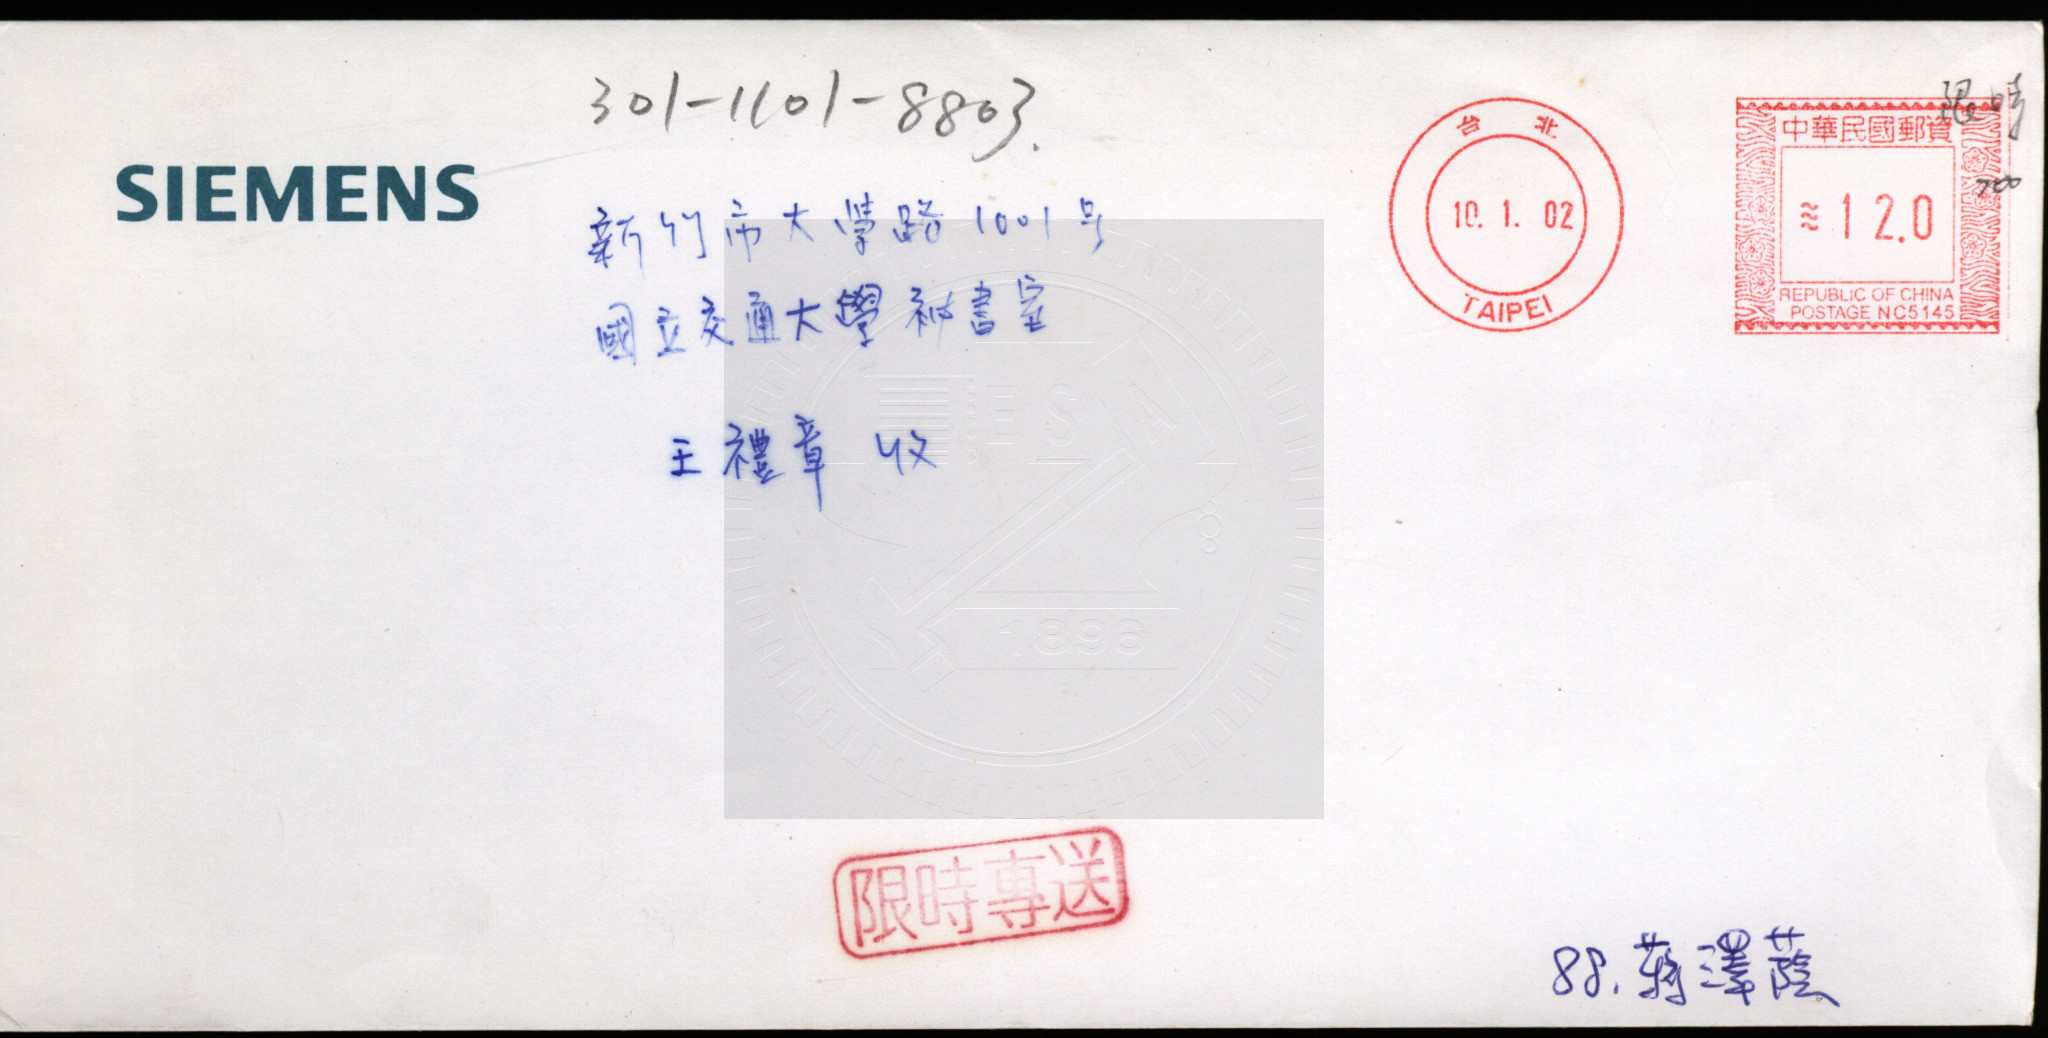 301-1101-8803.
SIEMENS
新竹市大學路1001号
國立交通大學秘書室
王禮章 收
台 北
10. 1. 02
TAIPEI
限時
中華民國郵資
≈120
12.0
REPUBLIC OF CHINA
POSTAGE NC5145
ESA
1896
限時專送
88.蔣澤蔭